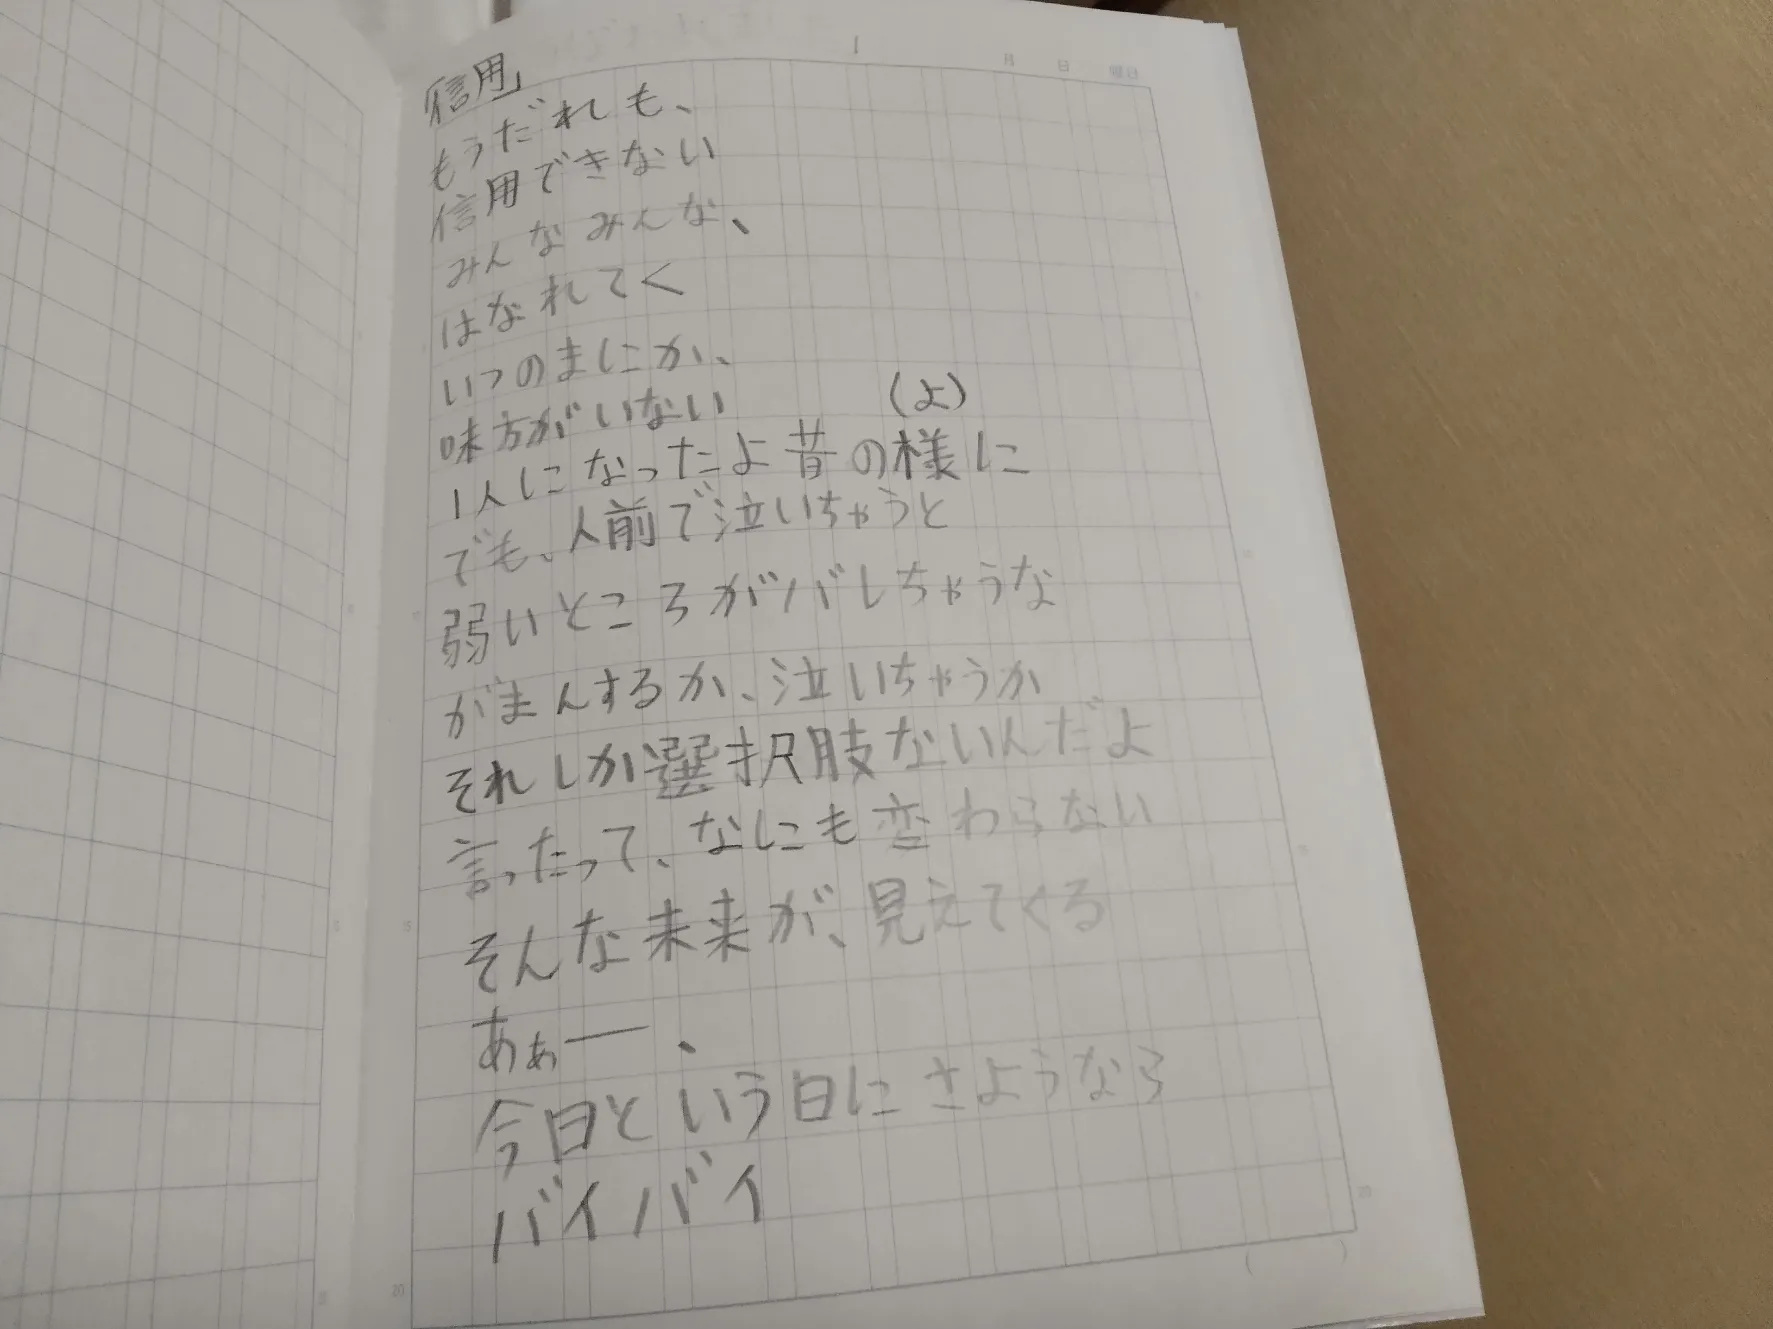 1 月 日 曜日
「信用」
もうだれも、
信用できない
みんなみんな、
はなれてく
いつのまにか、
味方がいない
(よ)
1人になったよ昔の様に
でも、人前で泣いちゃうと
弱いところがバレちゃうな
がまんするか、泣いちゃうか
それしか選択肢ないんだよ
言ったって、なにも変わらない
そんな未来が、見えてくる
あぁー、
今日という日にさようなら
バイバイ